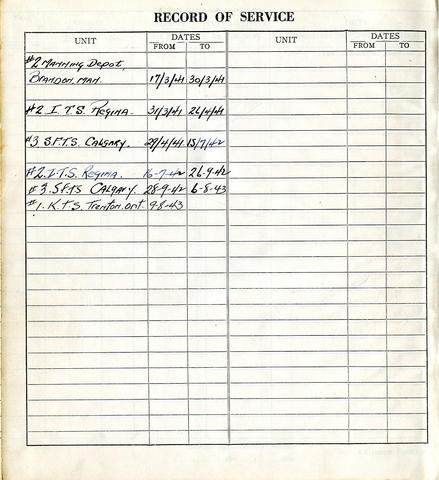 RECORD OF SERVICE
UNIT DATES FROM TO UNIT DATES FROM TO
#2 Manning Depot,
Brandon, Man. 17/3/41 30/3/41
#2 I.T.S. Regina. 31/3/41 26/4/41
#3 S.F.T.S. Calgary. 29/4/41 15/7/42
#2. I.T.S. Regina. 16-7-42 26-9-42
#3. S.F.T.S Calgary. 28-9-42 6-8-43
#1. K.T.S. Trenton. Ont. 9-8-43